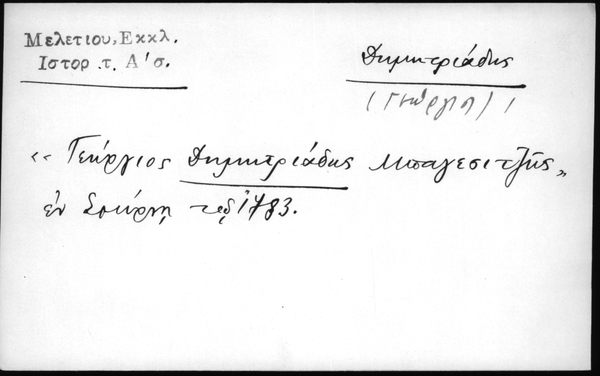 Μελετίου, Εκκλ.
Ιστορ .τ. Α' σ.
Δημητριάδης
(Γεώργιος)
«Γεώργιος Δημητριάδης Μπαγεσιτζῆς»
ἐν Σμύρνῃ τῷ 1783.